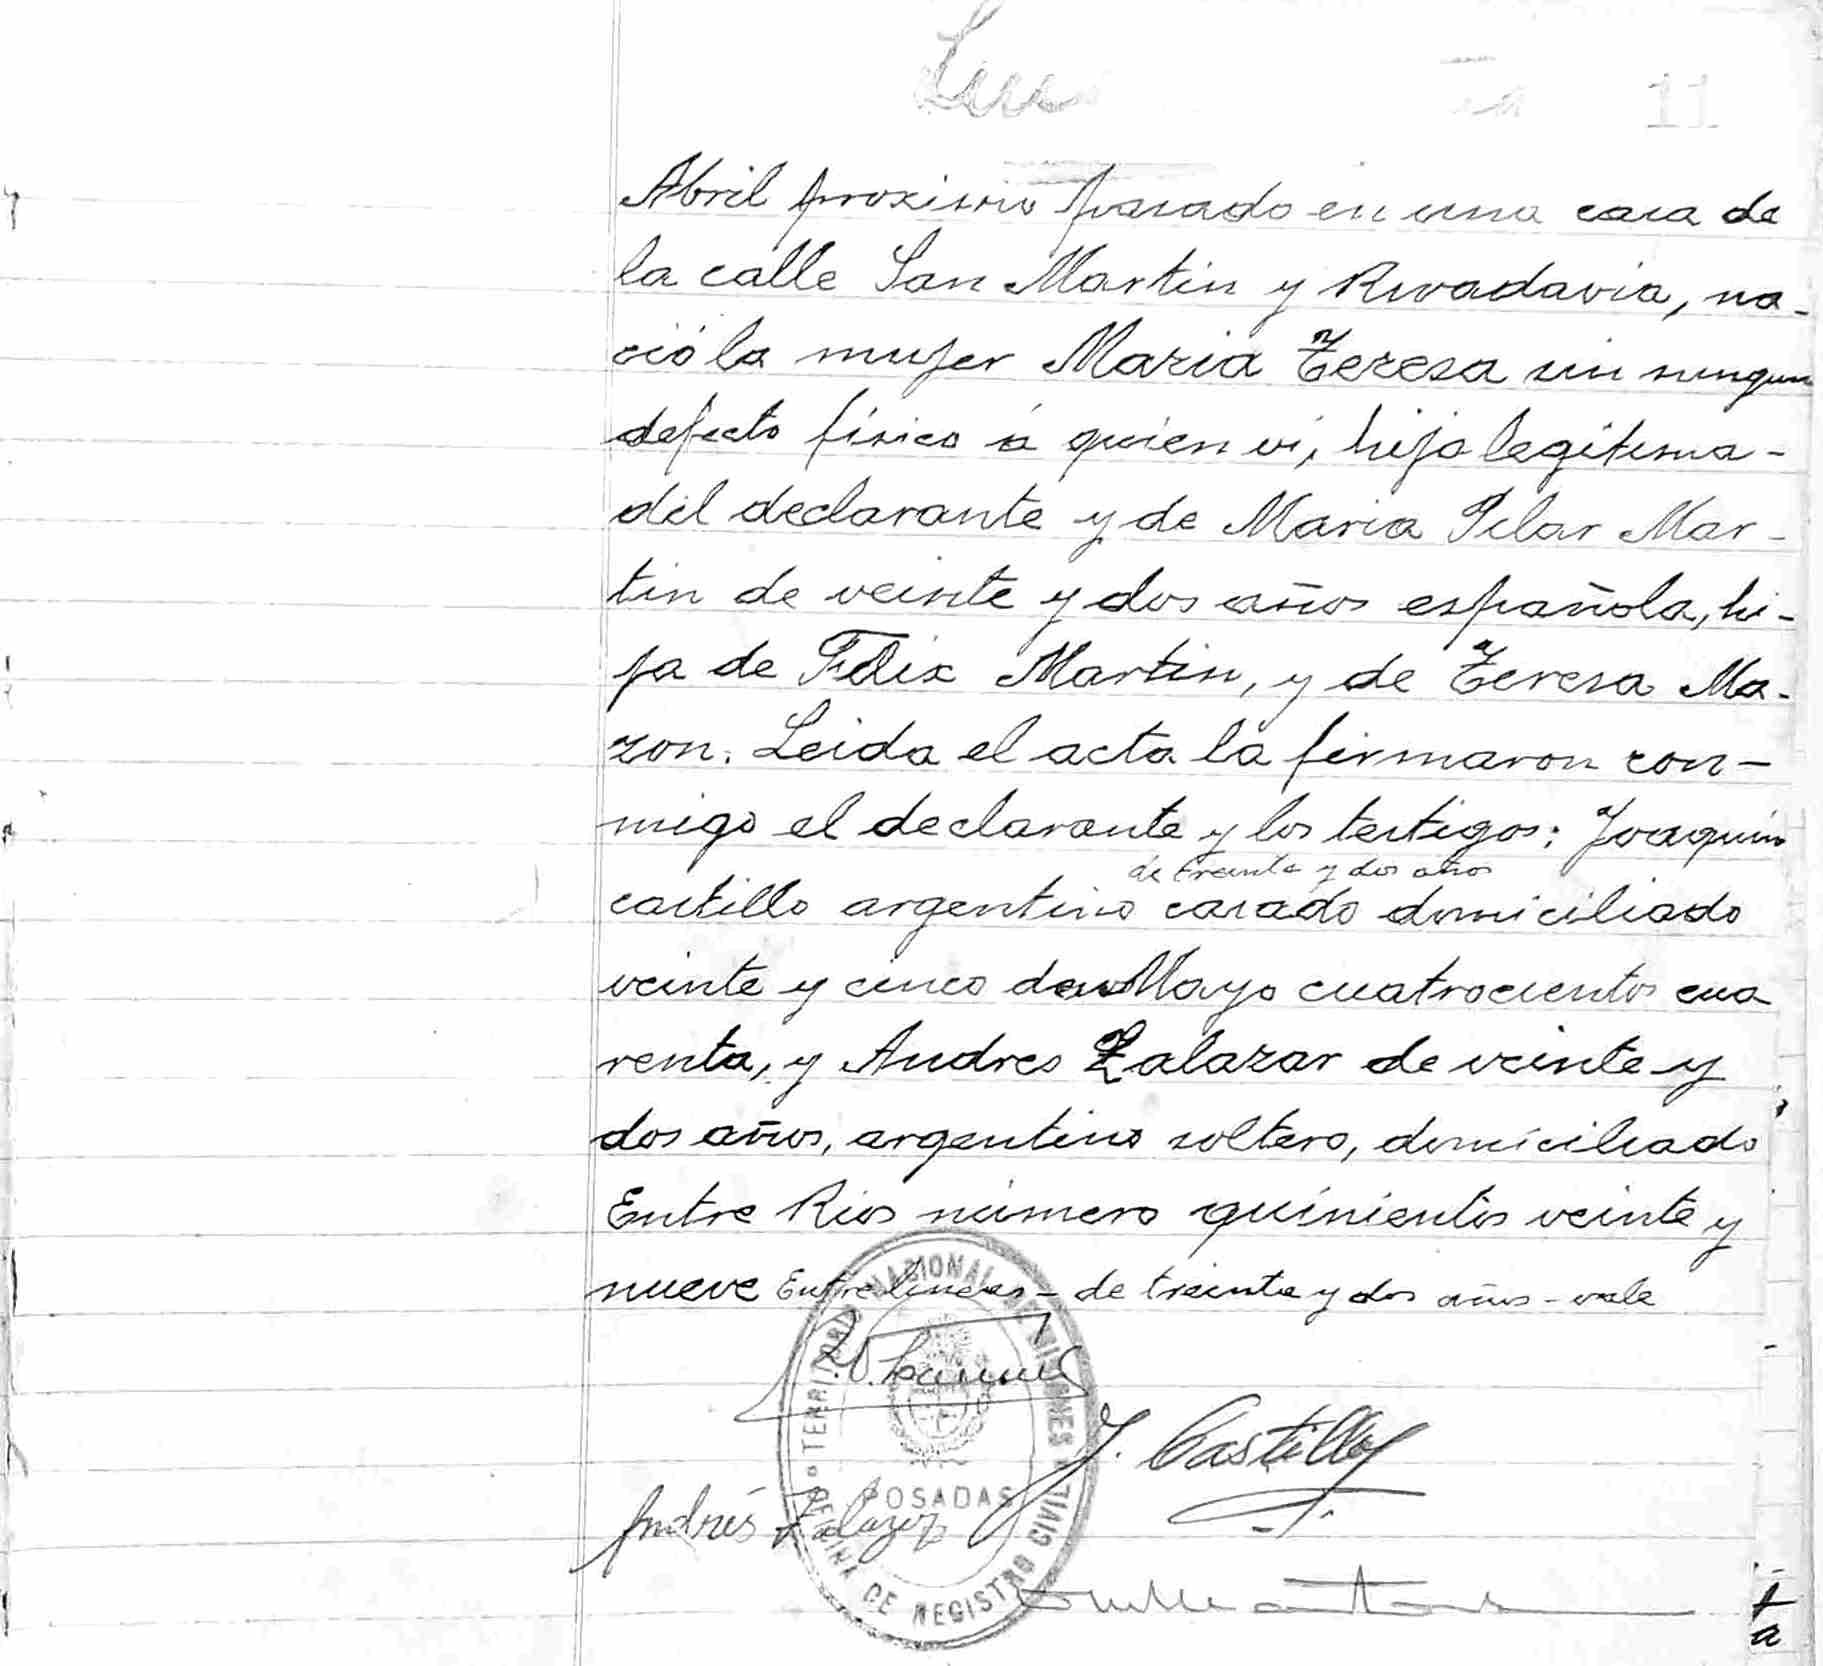 11
Abril proximo pasado en una casa de
la calle San Martin y Rivadavia, na-
ció la mujer Maria Teresa sin ningun
defecto físico á quien ví, hija legitima -
del declarante y de Maria Pilar Mar-
tin de veinte y dos años española, hi-
ja de Felix Martin, y de Teresa Ma-
zon. Leida el acta la firmaron con-
migo el declarante y los testigos: Joaquin
de treinta y dos años
castillo argentino casado domiciliado
veinte y cinco de Mayo cuatrocientos cua
renta, y Andres Zalazar de veinte y
dos años, argentino soltero, domiciliado
Entre Rios número quinientos veinte y
nueve Entrelineas - de treinta y dos años - vale
TERRITORIO NACIONAL DE MISIONES
POSADAS
OFICINA DE REGISTRO CIVIL
J. Castillo
Andrés Zalazar
ta